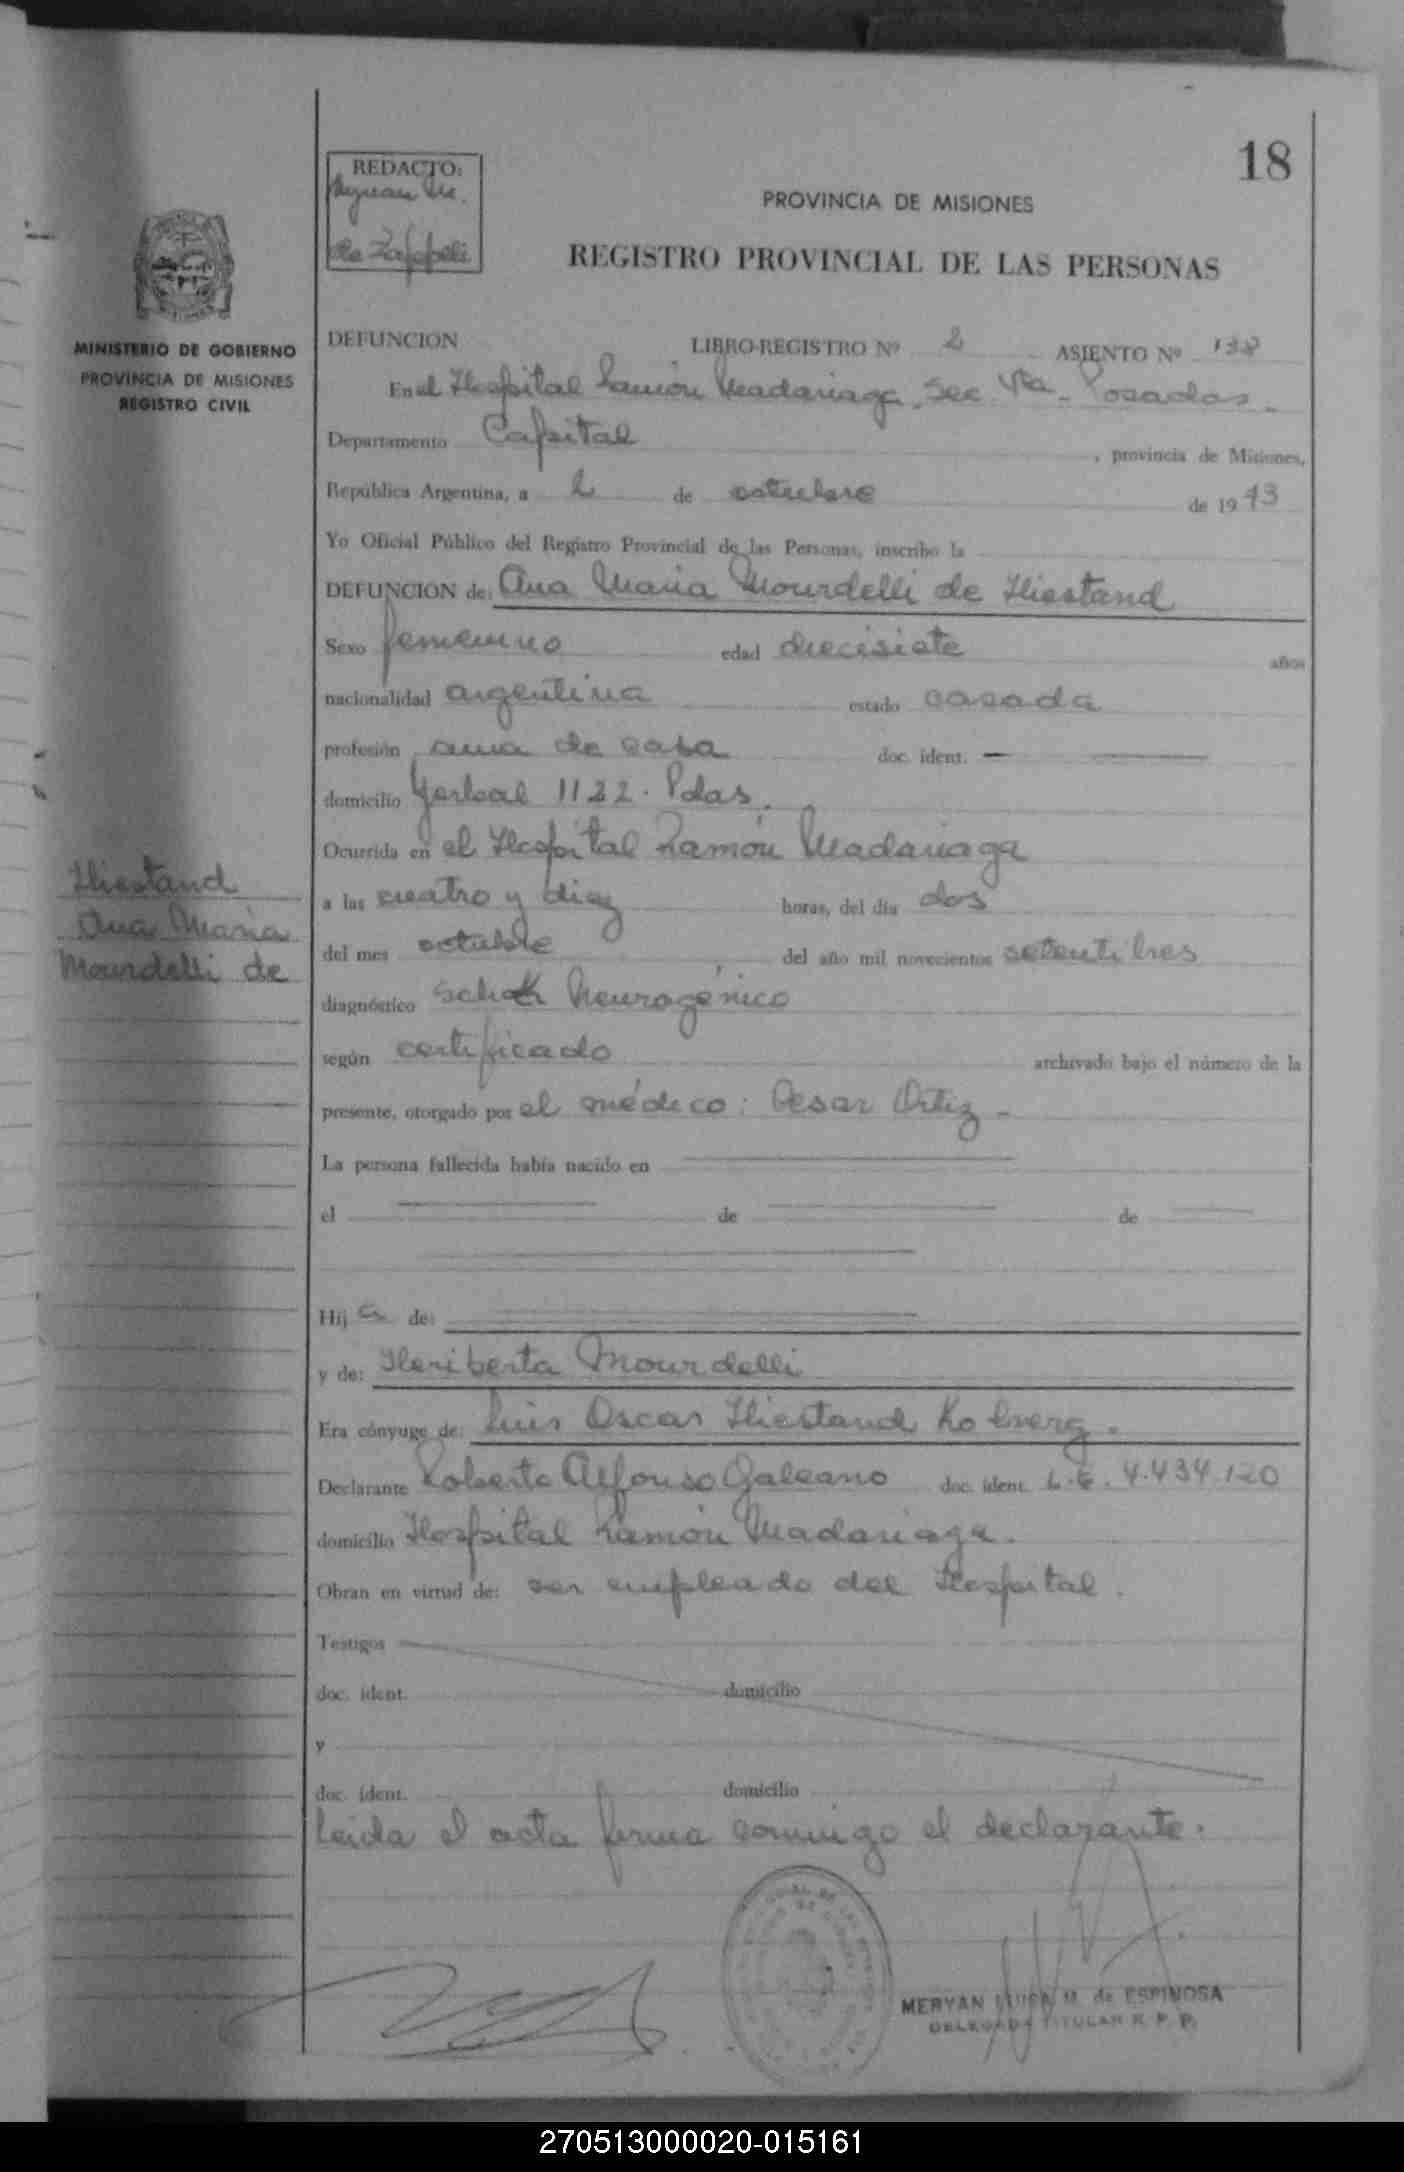 18
REDACTO:
de
PROVINCIA DE MISIONES
REGISTRO PROVINCIAL DE LAS PERSONAS
MINISTERIO DE GOBIERNO
PROVINCIA DE MISIONES
REGISTRO CIVIL
DEFUNCION LIBRO-REGISTRO Nº 2 ASIENTO Nº 138
En el Hospital Ramón Madariaga. Sec. Posadas.
Departamento Capital , provincia de Misiones,
República Argentina, a 2 de octubre de 1973
Yo Oficial Público del Registro Provincial de las Personas, inscribo la
DEFUNCION de: Ana Maria Mourdelli de Hiestand
Sexo femenino edad diecisiete años
nacionalidad argentina estado casada
profesión ama de casa doc. ident. —
domicilio Yerbal 1122. Pdas.
Ocurrida en el Hospital Ramón Madariaga
a las cuatro y diez horas, del día dos
del mes octubre del año mil novecientos setenti tres
diagnóstico schok Neurogénico
según certificado archivado bajo el número de la
presente, otorgado por el médico: Cesar Ortiz -
La persona fallecida había nacido en
el de de
Hij a de:
y de: Heriberta Mourdelli
Era cónyuge de: Luis Oscar Hiestand
Declarante Roberto Alfonso Galeano doc. ident. L.E. 4.434.120
domicilio Hospital Ramón Madariaga.
Obran en virtud de: ser empleado del Hospital.
Testigos
doc. ident. domicilio
y
doc. ident. domicilio
Leida el acta firma comigo el declarante.
Hiestand
Ana Maria
Mourdelli de
MERYAN LUISA M. de ESPINOSA
DELEGADA TITULAR R. P. P.
270513000020-015161